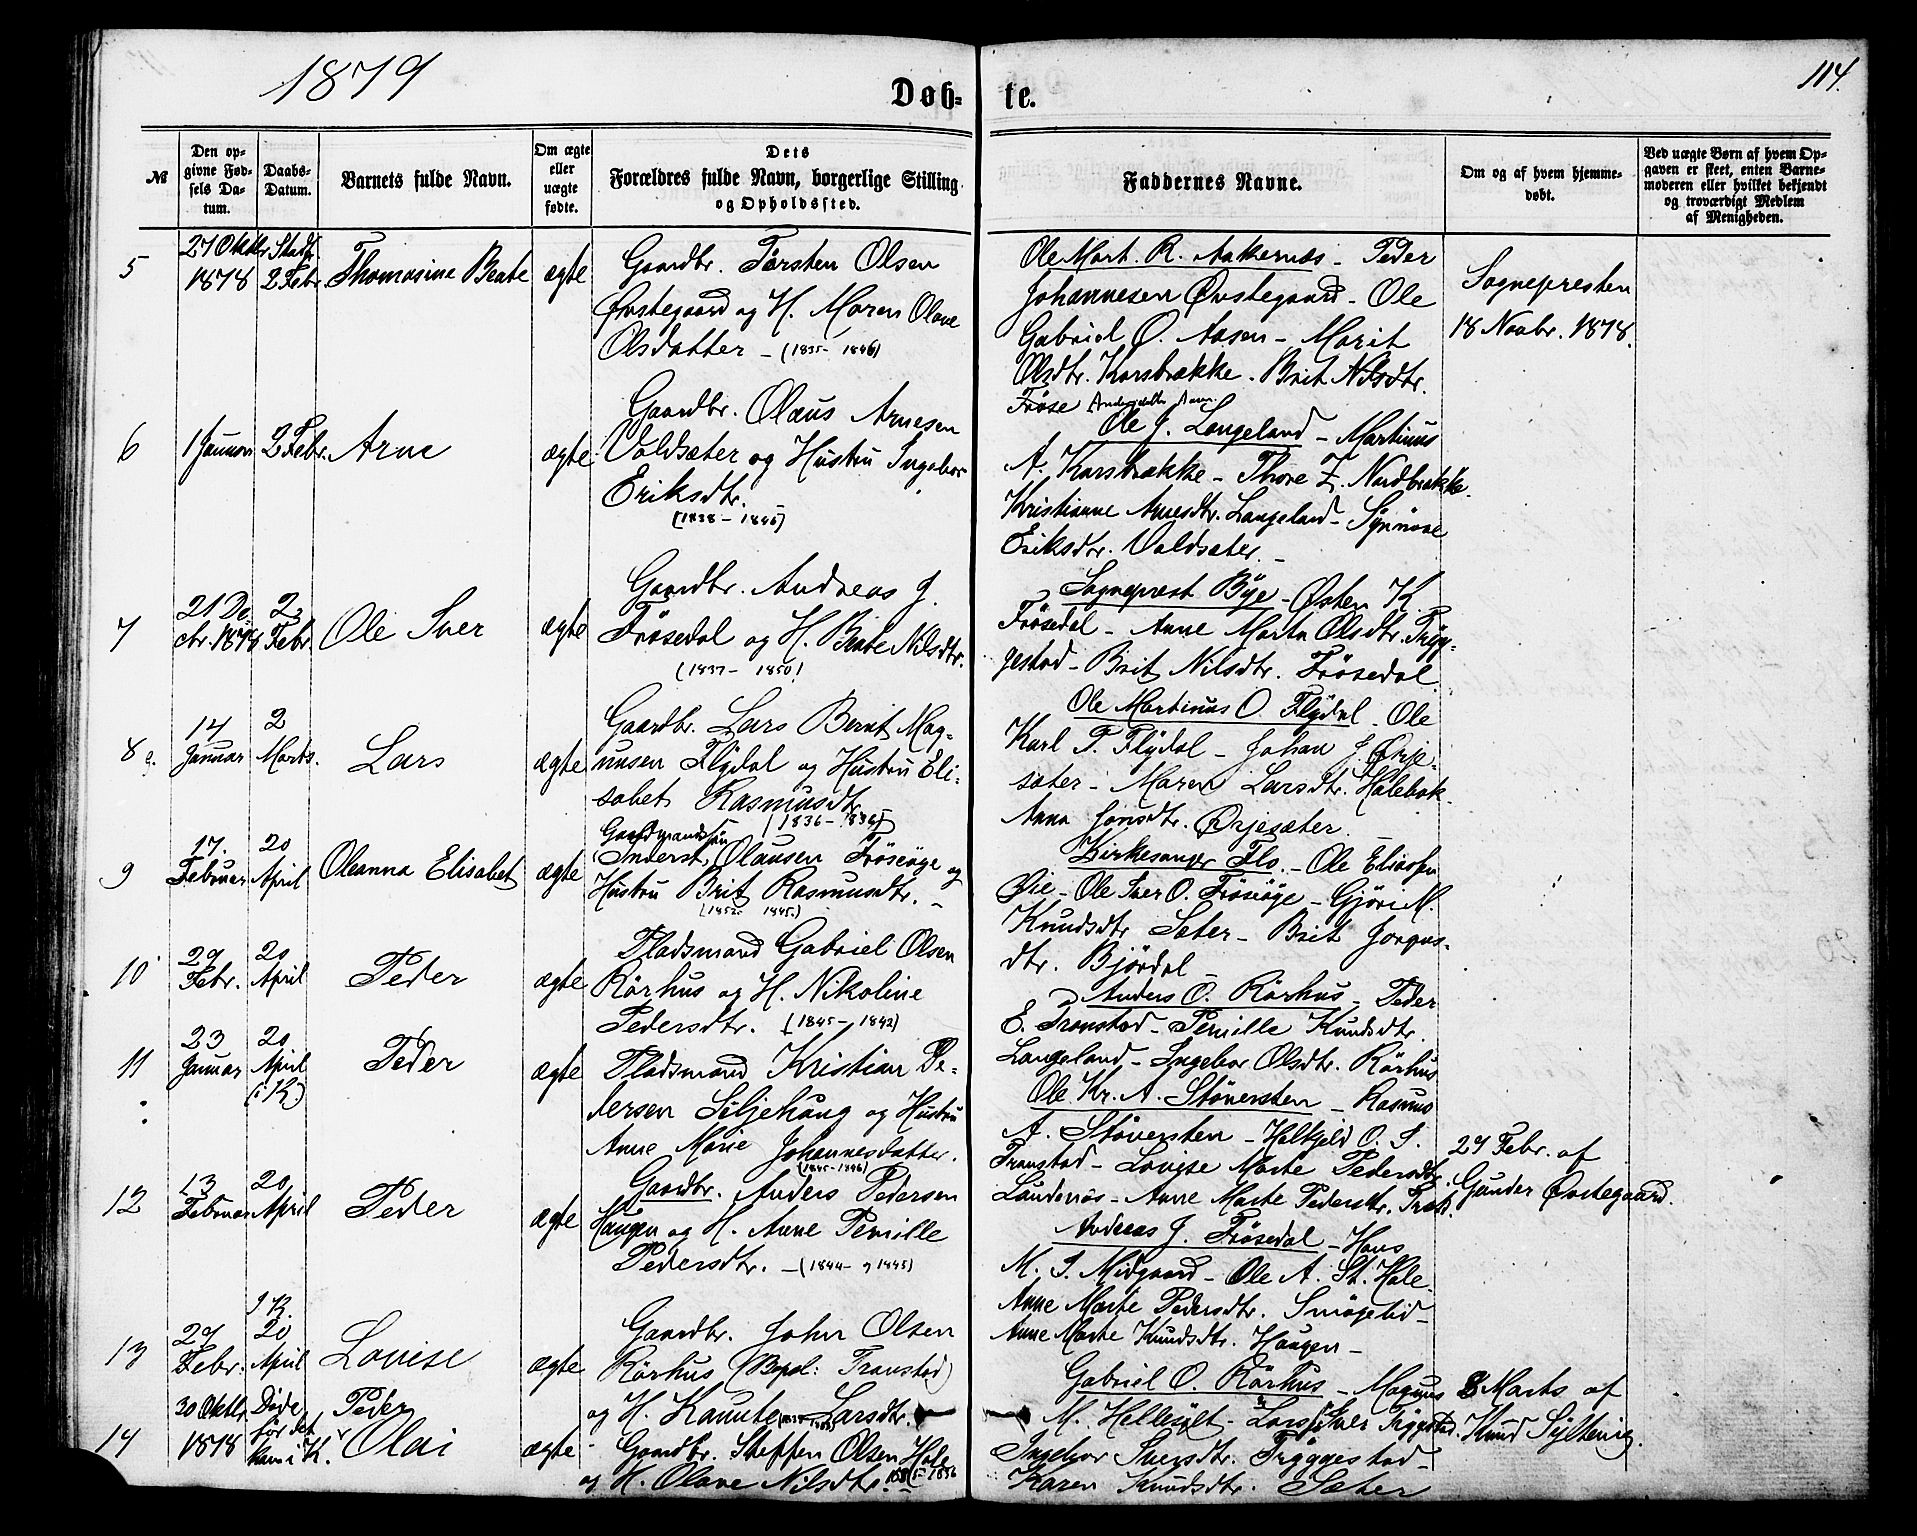 1879
Døb-
te.
114.
№
Den op-
givne Fød-
sels Da-
tum.
Daabs-
Datum.
Barnets fulde Navn.
Om ægte
eller
uægte
fødte.
Dets
Forældres fulde Navn, borgerlige Stilling
og Opholdssted.
Faddernes Navne.
Om og af hvem hjemme-
døbt.
Ved uægte Børn af hvem Op-
gaven er skeet, enten Barne-
moderen eller hvilket bekjendt
og troværdigt Medlem
af Menigheden.
5
27 Oktbr
1878
Stadf.
2 Febr.
Thomasine Beate
ægte
Gaardbr. Torsten Olsen
Øvstegaard og H. Maren Olave
Olsdatter - (1835 - 1846)
Ole Mart. R. Aakernæs - Peder
Johannesen Øvstegaard - Ole
Gabriel O. Aasen - Marit
Olsdtr. Korsbrække. Brit Nilsdtr.
Frøse
Sognepresten
18 Novbr. 1878.
6
1 Januar
2 Febr.
Arne
ægte
Gaardbr. Olaus Arnesen
Voldsæter og Hustru Ingebor
Eriksdtr. -
(1838 - 1846)
Ole J. Langeland - Martinus
A. Korsbrække - Thore Z. Nordbrække
Kristianne Arnesdtr. Langeland - Synnøve
Eriksdtr. Voldsæter -
7
21 De-
cbr. 1878
2
Febr.
Ole Iver
ægte
Gaardbr. Andreas J.
Frøsedal og H. Beate Nilsdtr.
(1837 - 1850)
Sogneprest Bye - Østen K.
Frøsedal - Anne Marta Olsdtr. Tryg-
gestad - Brit Nilsdtr. Frøsedal
8
14
Januar
2
Marts.
Lars
ægte
Gaardbr. Lars Bernt Mag-
nusen Flydal og Hustru Eli-
sabet Rasmusdtr.
(1836 - 1836)
Ole Martinus O. Flydal - Ole
Karl P. Flydal - Johan J. Ørje-
sæter - Maren Larsdtr. Halebak.
Anna Jonsdtr. Ørjesæter. -
9
17.
Februar
20
April
Oleanna Elisabet
ægte
Gaardmandssøn
Inderst, Olausen Frøseøye og
Hustru Brit Rasmusdtr. -
(1852 - 1845.)
Kirkesanger Flo. - Ole Eliassen
Øie - Ole Iver O. Frøseøye - Gjøri M.
Knudsdtr Sæter - Brit Jorgins-
dtr. Bjørdal -
10
29
Febr.
20
April
Peder
ægte
Pladsmand Gabriel Olsen
Rørhus og H. Nikoline
Pedersdtr. (1845 - 1842)
Anders O. Rørhus - Peder
E. Tronstad - Pernille Knudsdtr.
Langeland - Ingebor Olsdtr. Rørhus
11
23
Januar
20
April
(i K.)
Peder
ægte
Pladsmand Kristian Pe-
dersen Siljehaug og Hustru
Anne Marie Johannesdatter.
(1845 - 1846)
Ole Kr. A. Støversten - Rasmus
A. Støversten - Halkjeld O. S.
Tronstad - Lovise Marte Pedersdtr.
Landenæs - Anne Marte Pedersdtr.
12
13
Februar
20
April
Peder
ægte
Gaardbr. Anders Pedersen
Haugen og H. Anne Pernille
Pedersdtr. - (1844 - 1845)
Andreas J. Frøsedal - Hans
M. I. Midgaard - Ole A. St. Hole
Anne Marte Pedersdtr. Smøgelid -
Anne Marte Knudsdtr. Haugen -
27 Febr. af
Gunder Øvstegaard.
13
27
Febr.
I K.
20
April
Lovise
ægte
Gaardbr. John Olsen
Rørhus (Bopl: Tronstad)
og H. Kanute Larsdtr.
Gabriel O. Rørhus - Magnus
M. Hellesylt - Lars Iver Tryggestad.
Ingebor Iversdtr. Tryggestad -
Karen Knudsdtr. Sæter
8 Marts af
Knud Syltevig.
14
30 Oktbr.
1878
Døde
før det
kom i K.
Peder
Olai
ægte
Gaardbr. Steffen Olsen Hole
og H. Olave Nilsdtr.